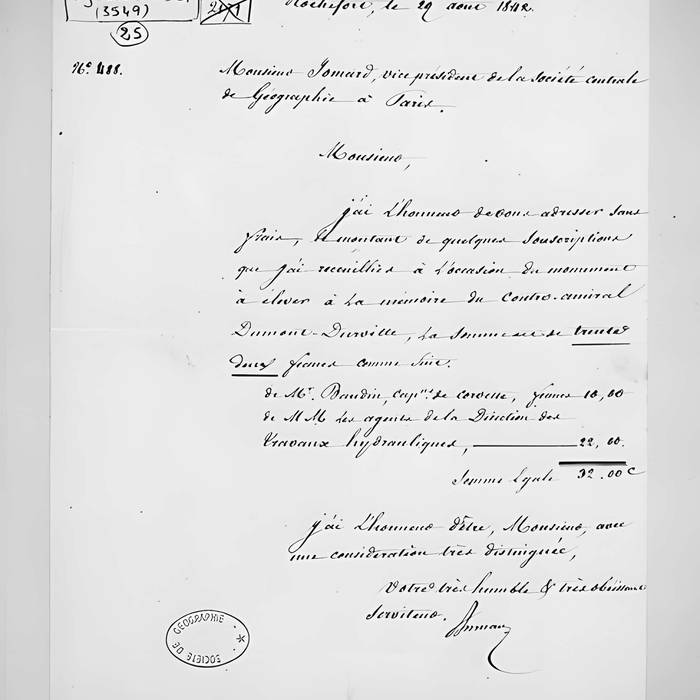 (3549)
25
Rochefort, le 29 aout 1842.
N°. 488.
Monsieur Jomard, vice président de la société centrale
de Géographie à Paris.
Monsieur,
j'ai l'honneur de vous adresser sans
frais, le montant de quelques souscriptions
que j'ai recueillies à l'occasion du monument
à élever à la mémoire du contre-amiral
Dumont-Durville, la somme est de trente
deux francs comme suit.
de Mr. Baudin, capne. de corvette, francs 10,00
de MM les agents de la Direction des
travaux hydrauliques, 22,00.
Somme Egale 32.00 c
j'ai l'honneur d'être, Monsieur, avec
une considération très distinguée,
votre très humble & très obéissant
serviteur.
SOCIÉTÉ DE GÉOGRAPHIE